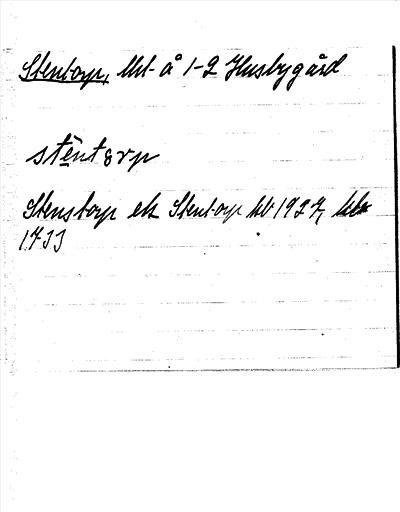 Stentorp, Utl å 1-2 Husbygård
stentorp
Stenstorp el. Stentorp hb 1927,
1733